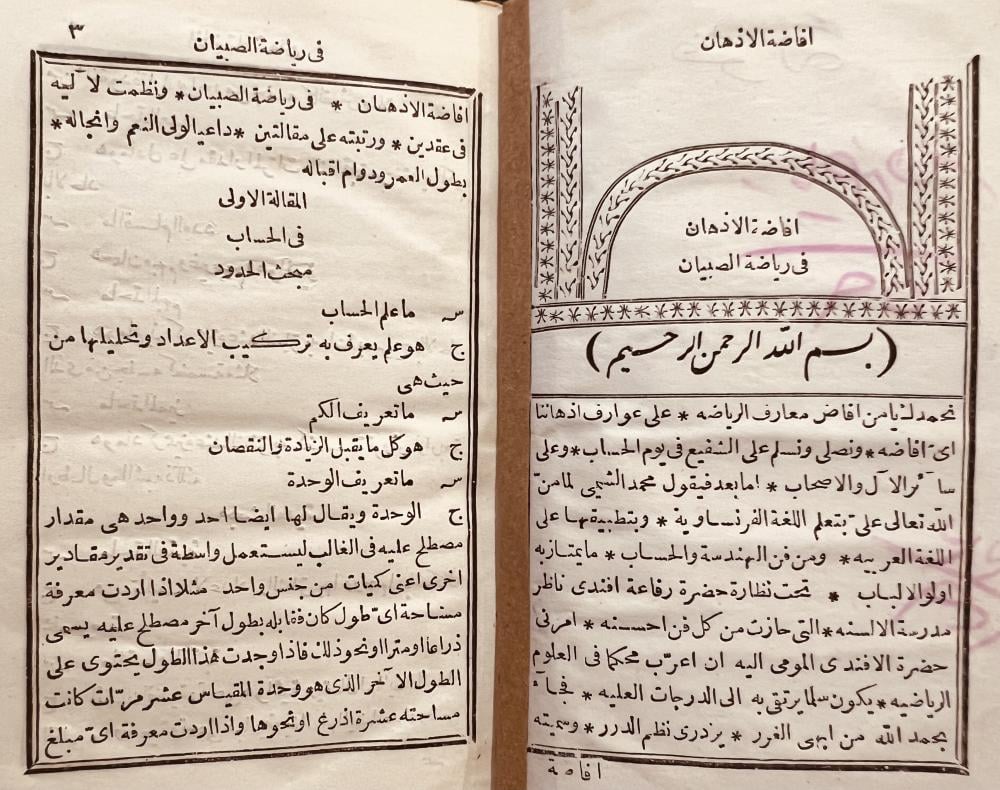 افاضة الاذهان
افاضة الاذهان
فى رياضة الصبيان
(بسم الله الرحمن الرحيم)
نحمدك يا من افاض معارف الرياضه * على عوارف اذهاننا
اىّ افاضه * ونصلى ونسلم على الشفيع فى يوم الحساب * وعلى
سائر الآل والاصحاب * اما بعد فيقول محمد الشيمى لما منّ
الله تعالى علىّ بتعلم اللغة الفرنساوية * وبتطبيقها على
اللغة العربيه * ومن فن الهندسة والحساب * ما يمتاز به
اولوا الالباب * تحت نظارة حضرة رفاعة افندى ناظر
مدرسة الالسنه * التى حازت من كل فن احسنه * امرنى
حضرة الافندى المومى اليه ان اعرّب محكما فى العلوم
الرياضيه * يكون سلما يرتقى به الى الدرجات العليه * فجآء
بحمد الله من ابهى الغرر * يزدرى نظم الدرر * وسميته
افاضة
٣
فى رياضة الصبيان
افاضة الاذهان * فى رياضة الصبيان * ونظمت لآليه
فى عقدين * ورتبته على مقالتين * داعيا لولى النعم وانجاله *
بطول العمر ودوام اقباله
المقالة الاولى
فى الحساب
مبحث الحدود
س ما علم الحساب
ج هو علم يعرف به تركيب الاعداد وتحليلها من
حيث هى
س ما تعريف الكم
ج هو كل ما يقبل الزيادة والنقصان
س ما تعريف الوحدة
ج الوحدة ويقال لها ايضا احد وواحد هى مقدار
مصطلح عليه فى الغالب ليستعمل واسطة فى تقدير مقادير
اخرى اعنى كميات من جنس واحد مثلا اذا اردت معرفة
مساحة اىّ طول كان فقابله بطول آخر مصطلح عليه يسمى
ذراعا او مترا او نحو ذلك فاذا وجدت هذا الطول يحتوى على
الطول الآخر الذى هو وحدة المقياس عشر مرّات كانت
مساحته عشرة اذرع او نحوها واذا اردت معرفة اىّ مبلغ